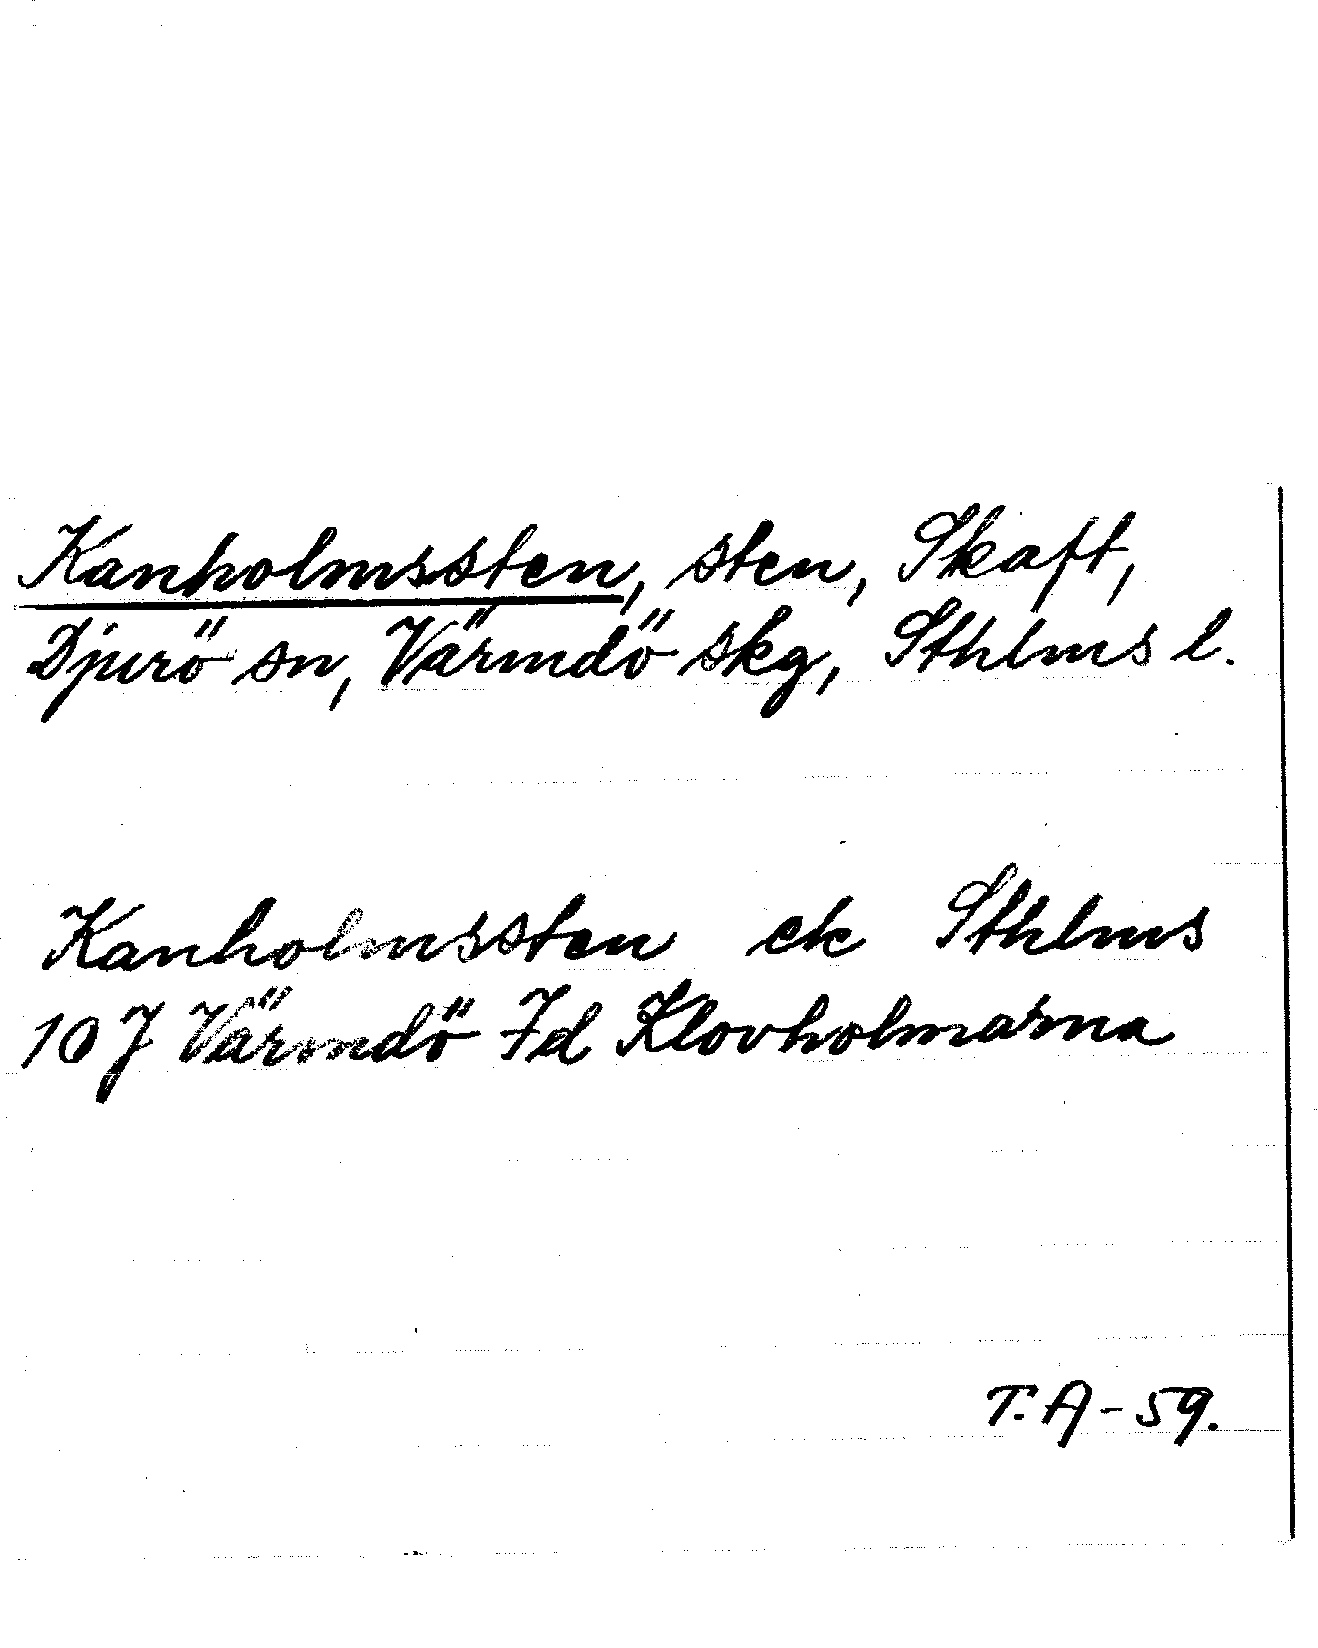 Kanholmssten, sten, Skaft,
Djurö sn, Värmdö skg, Sthlms l.
Kanholmssten ek Sthlms
10 J Värmdö Id Klovholmarna
T. A - 59.